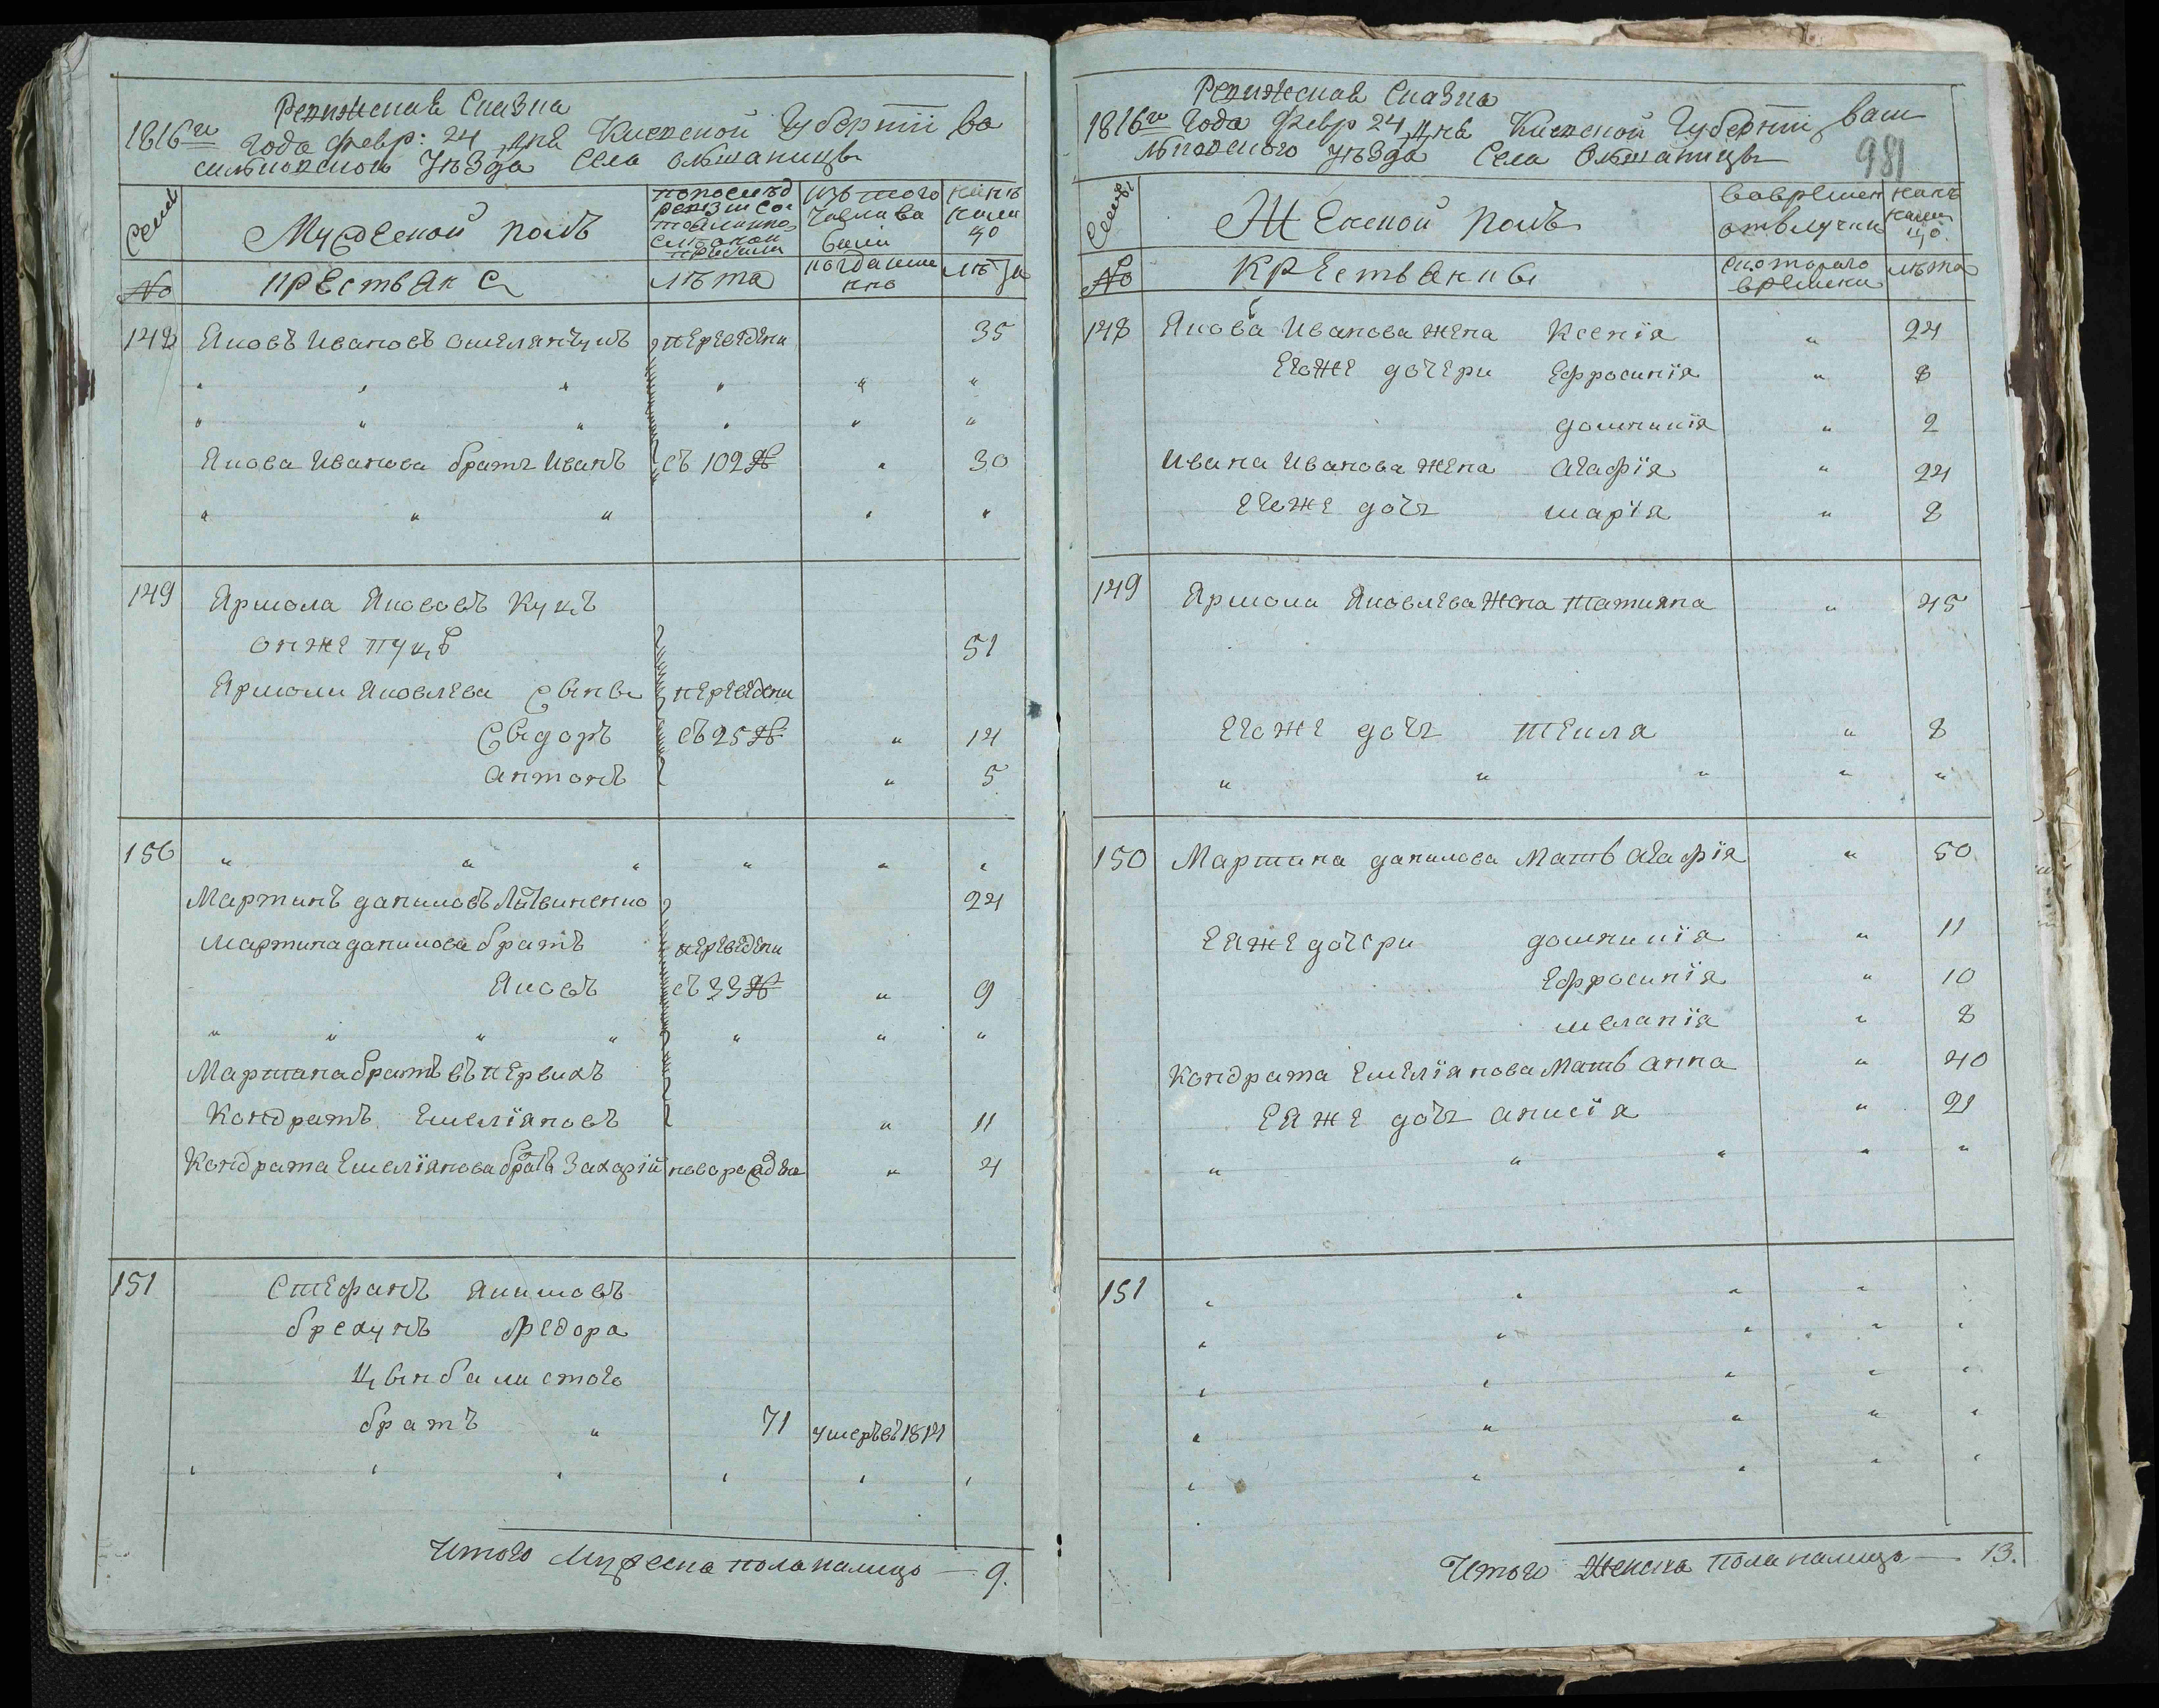 Ревижская Сказка
1816го Года Февр: 24 дня Киевской Губерніи Ва
сильковского Уѣзда Села Ольшаницы
Семьи
Мужеской полъ
по последней
ревизіи со
стояло и
после оной
прибыло
Изъ того
числа вы
было
нынѣ
нали
цо
№
крестьяне
лѣта
когда имен
но
лѣта
148 Яковъ Ивановъ Омелянчукъ переведены 35
" " " " " "
" " " " " "
Якова Иванова братъ Иванъ съ 102 № " 30
" " " " "
149 Ярмола Якововъ Куцъ
онже Пуцъ 51
Ярмоли Яковлева сыны переведены
Сыдоръ съ 25 № " 14
антонъ " 5
150 " " " " " "
Мартинъ даниловъ Литвиненко 24
Мартина данилова братъ переведены
Яковъ съ 33 № " 9
" " " " " " "
Мартина братъ въ первыхъ
Кондратъ Емеліяновъ " 11
Кондрата Емеліянова братъ Захарій новорожденъ " 4
151 Стефанъ Якимовъ
брехунъ Федора
цынбалистого
братъ " 71 умеръ въ 1814
" " " " " "
Итого Мужеска пола налицо — 9.
Ревижская Сказка
1816го Года Февр 24 дня Киевской Губерніи Васи
льковского уѣзда Села Ольшаницы
981
Семьи
Женской полъ
Вовремен
отвлучки
нынѣ
нали
цо.
№
Крестьянки
скоторого
времени
лѣта
148 Якова Иванова жена Ксенія " 24
Егоже дочери Ефросинія " 8
домникія " 2
Ивана Иванова жена агафія " 24
Егоже дочъ марія " 8
149 Ярмоли Яковлева жена татияна " 45
Егоже дочъ текля " 8
" " " " "
150 Мартина данилова Мать агафія " 50
Еяже дочери домникія " 11
Ефросинія " 10
меланія " 8
Кондрата Емеліянова Мать анна " 40
Еяже дочъ анисія " 21
" " " " "
151 " " " " "
" " " " "
" " " " "
" " " " "
" " " " "
Итого Женска пола налицо — 13.